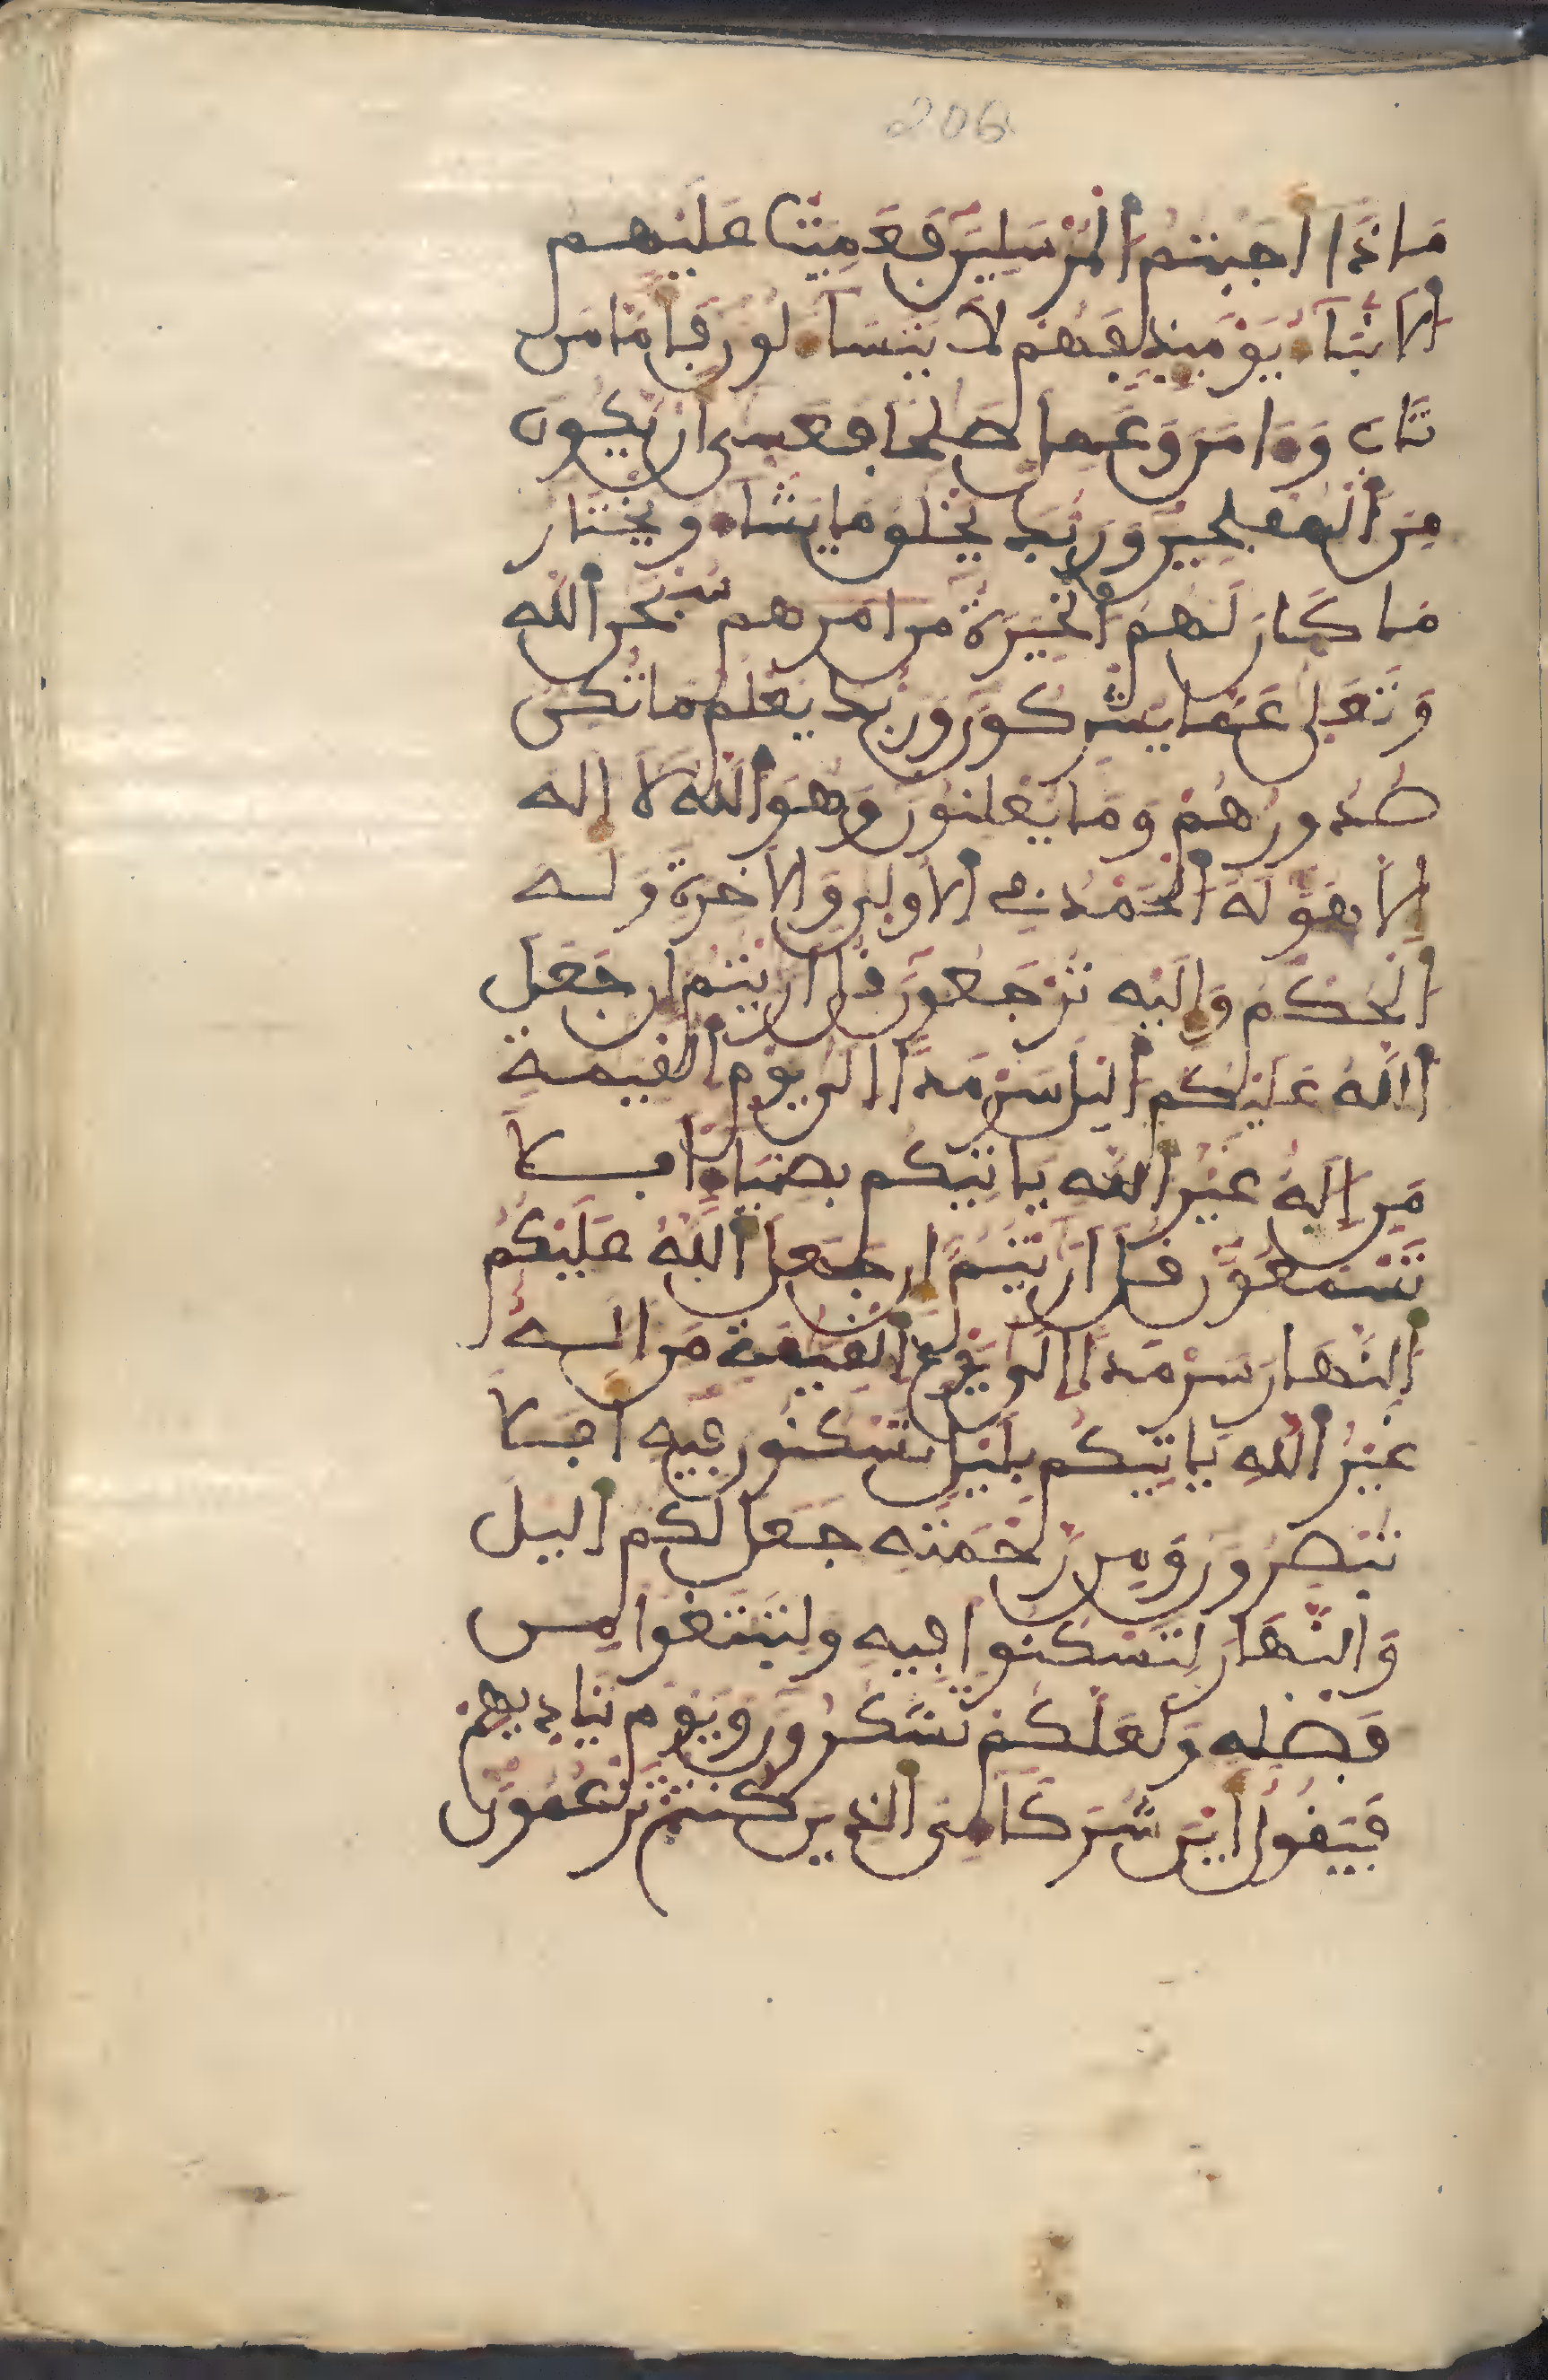 206
مَاذَا اجَبْتُمُ الْمُرْسَلِينَ فَعَمِيَتْ عَلَيْهِم
الَانۢبَآءُ يَوْمَئِذٍ فَهُمْ لَا يَتَسَآءَلُونَ فَأَمَّا مَن
تَابَ وَءَامَنَ وَعَمِلَ صَلِحًا فَعَسَى أَنْ يَكُونَ
مِنَ الْمُفْلِحِينَ وَرَبُّكَ يَخْلُقُ مَا يَشَآءُ وَيَخْتَار
مَا كَانَ لَهُمُ الْخِيَرَةُ من امرهم سُبْحَنَ اللَّهِ
وَتَعَلَى عَمَّا يُشْرِكُونَ وَرَبُّكَ يَعْلَمُ مَا تُكِنُّ
صُدُورُهُمْ وَمَا يُعْلِنُونَ وَهُوَ اللَّهُ لَا إِلَهَ
إِلَّا هُوَ لَهُ الْحَمْدُ فِي الْاولَى وَالاخِرَةِ وَلَهُ
الْحُكْمُ وَإِلَيْهِ تُرْجَعُونَ قُلَ ارَيْتُمُ إِن جَعَلَ
اللَّهُ عَلَيْكُمُ الَّيْلَ سَرْمَدًا الَى يَوْمِ الْقِيَمَةِ
مَنِ إِلَهٌ غَيْرُ اللَّهِ يَاتِيكُم بِضِيَآءٍ افَلَا
تَسْمَعُونَ قُلَ ارَيْتُمُ إِن جَعَلَ اللَّهُ عَلَيْكُمُ
النَّهَارَ سَرْمَدًا الَى يَوْمِ الْقِيَمَةِ مَنِ الَهٌ
غَيْرُ اللَّهِ يَاتِيكُم بِلَيْلٍ تَسْكُنُونَ فِيهِ افَلَا
تُبْصِرُونَ وَمِن رَّحْمَتِهِ جَعَلَ لَكُمُ الَّيْلَ
وَالنَّهَارَ لِتَسْكُنُوا فِيهِ وَلِتَبْتَغُوا مِن
فَضْلِهِ وَلَعَلَّكُمْ تَشْكُرُونَ وَيَوْمَ يُنَادِيهِمْ
فَيَقُولُ أَيْنَ شُرَكَآءِىَ الَّذِينَ كُنتُمْ تَزْعُمُونَ